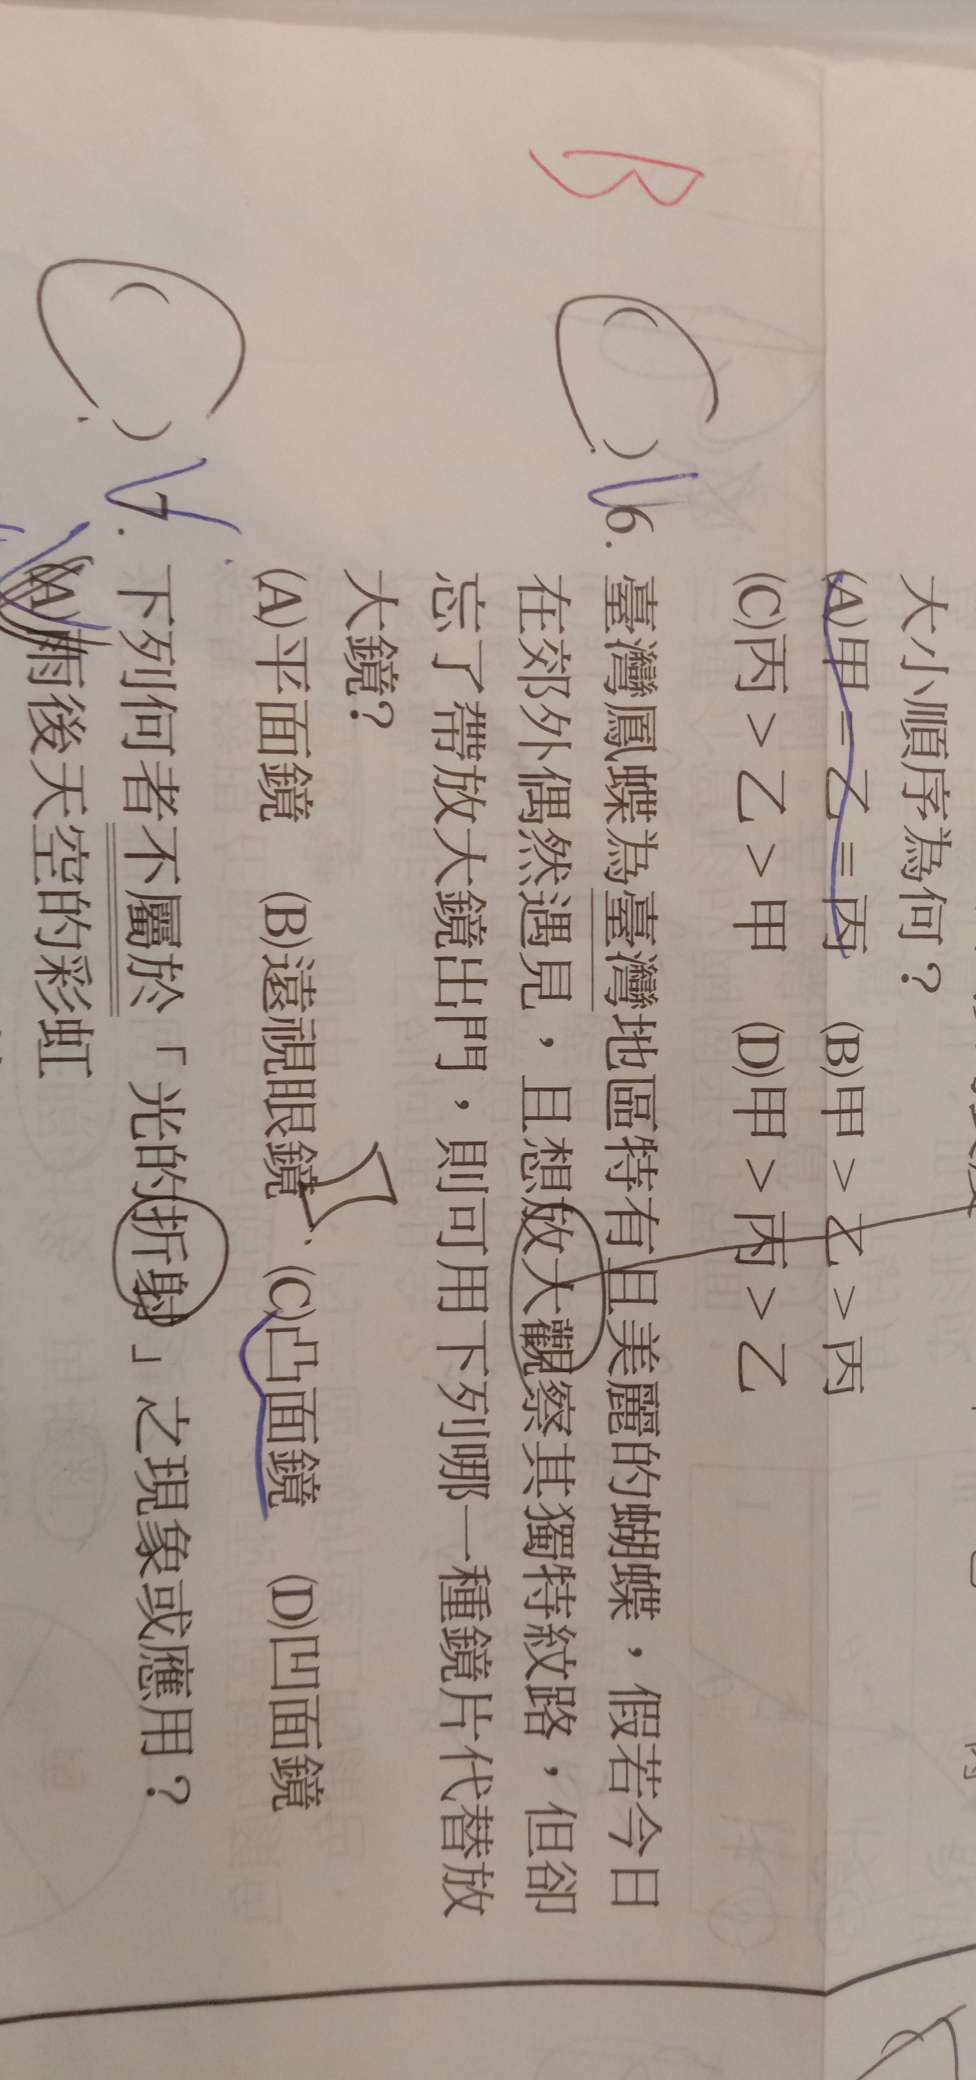 大小順序為何？
(A)甲＝乙＝丙 (B)甲＞乙＞丙
(C)丙＞乙＞甲 (D)甲＞丙＞乙
B
(C) 6. 臺灣鳳蝶為臺灣地區特有且美麗的蝴蝶，假若今日
在郊外偶然遇見，且想放大觀察其獨特紋路，但卻
忘了帶放大鏡出門，則可用下列哪一種鏡片代替放
大鏡？
(A)平面鏡 (B)遠視眼鏡 (C)凸面鏡 (D)凹面鏡
(C) 7. 下列何者不屬於「光的折射」之現象或應用？
(A)雨後天空的彩虹